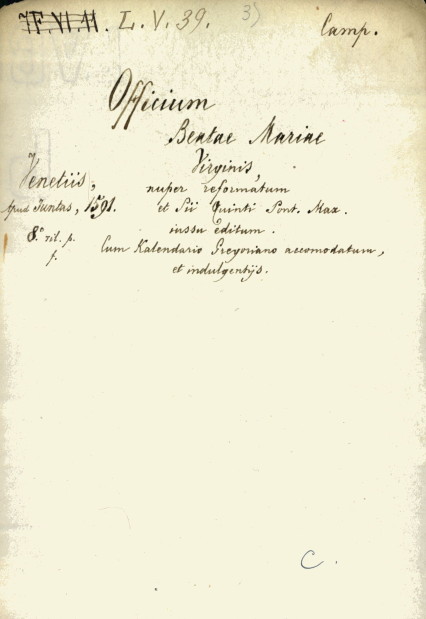 L. V. 39. 3)
Camp.
Officium
Beatae Mariae
Virginis,
Venetiis,
nuper reformatum
apud Juntas, 1591.
et Pii Quinti Pont. Max.
iussu editum.
8.°
Cum Kalendario Gregoriano accomodatum,
f.
et indulgentijs.
C.